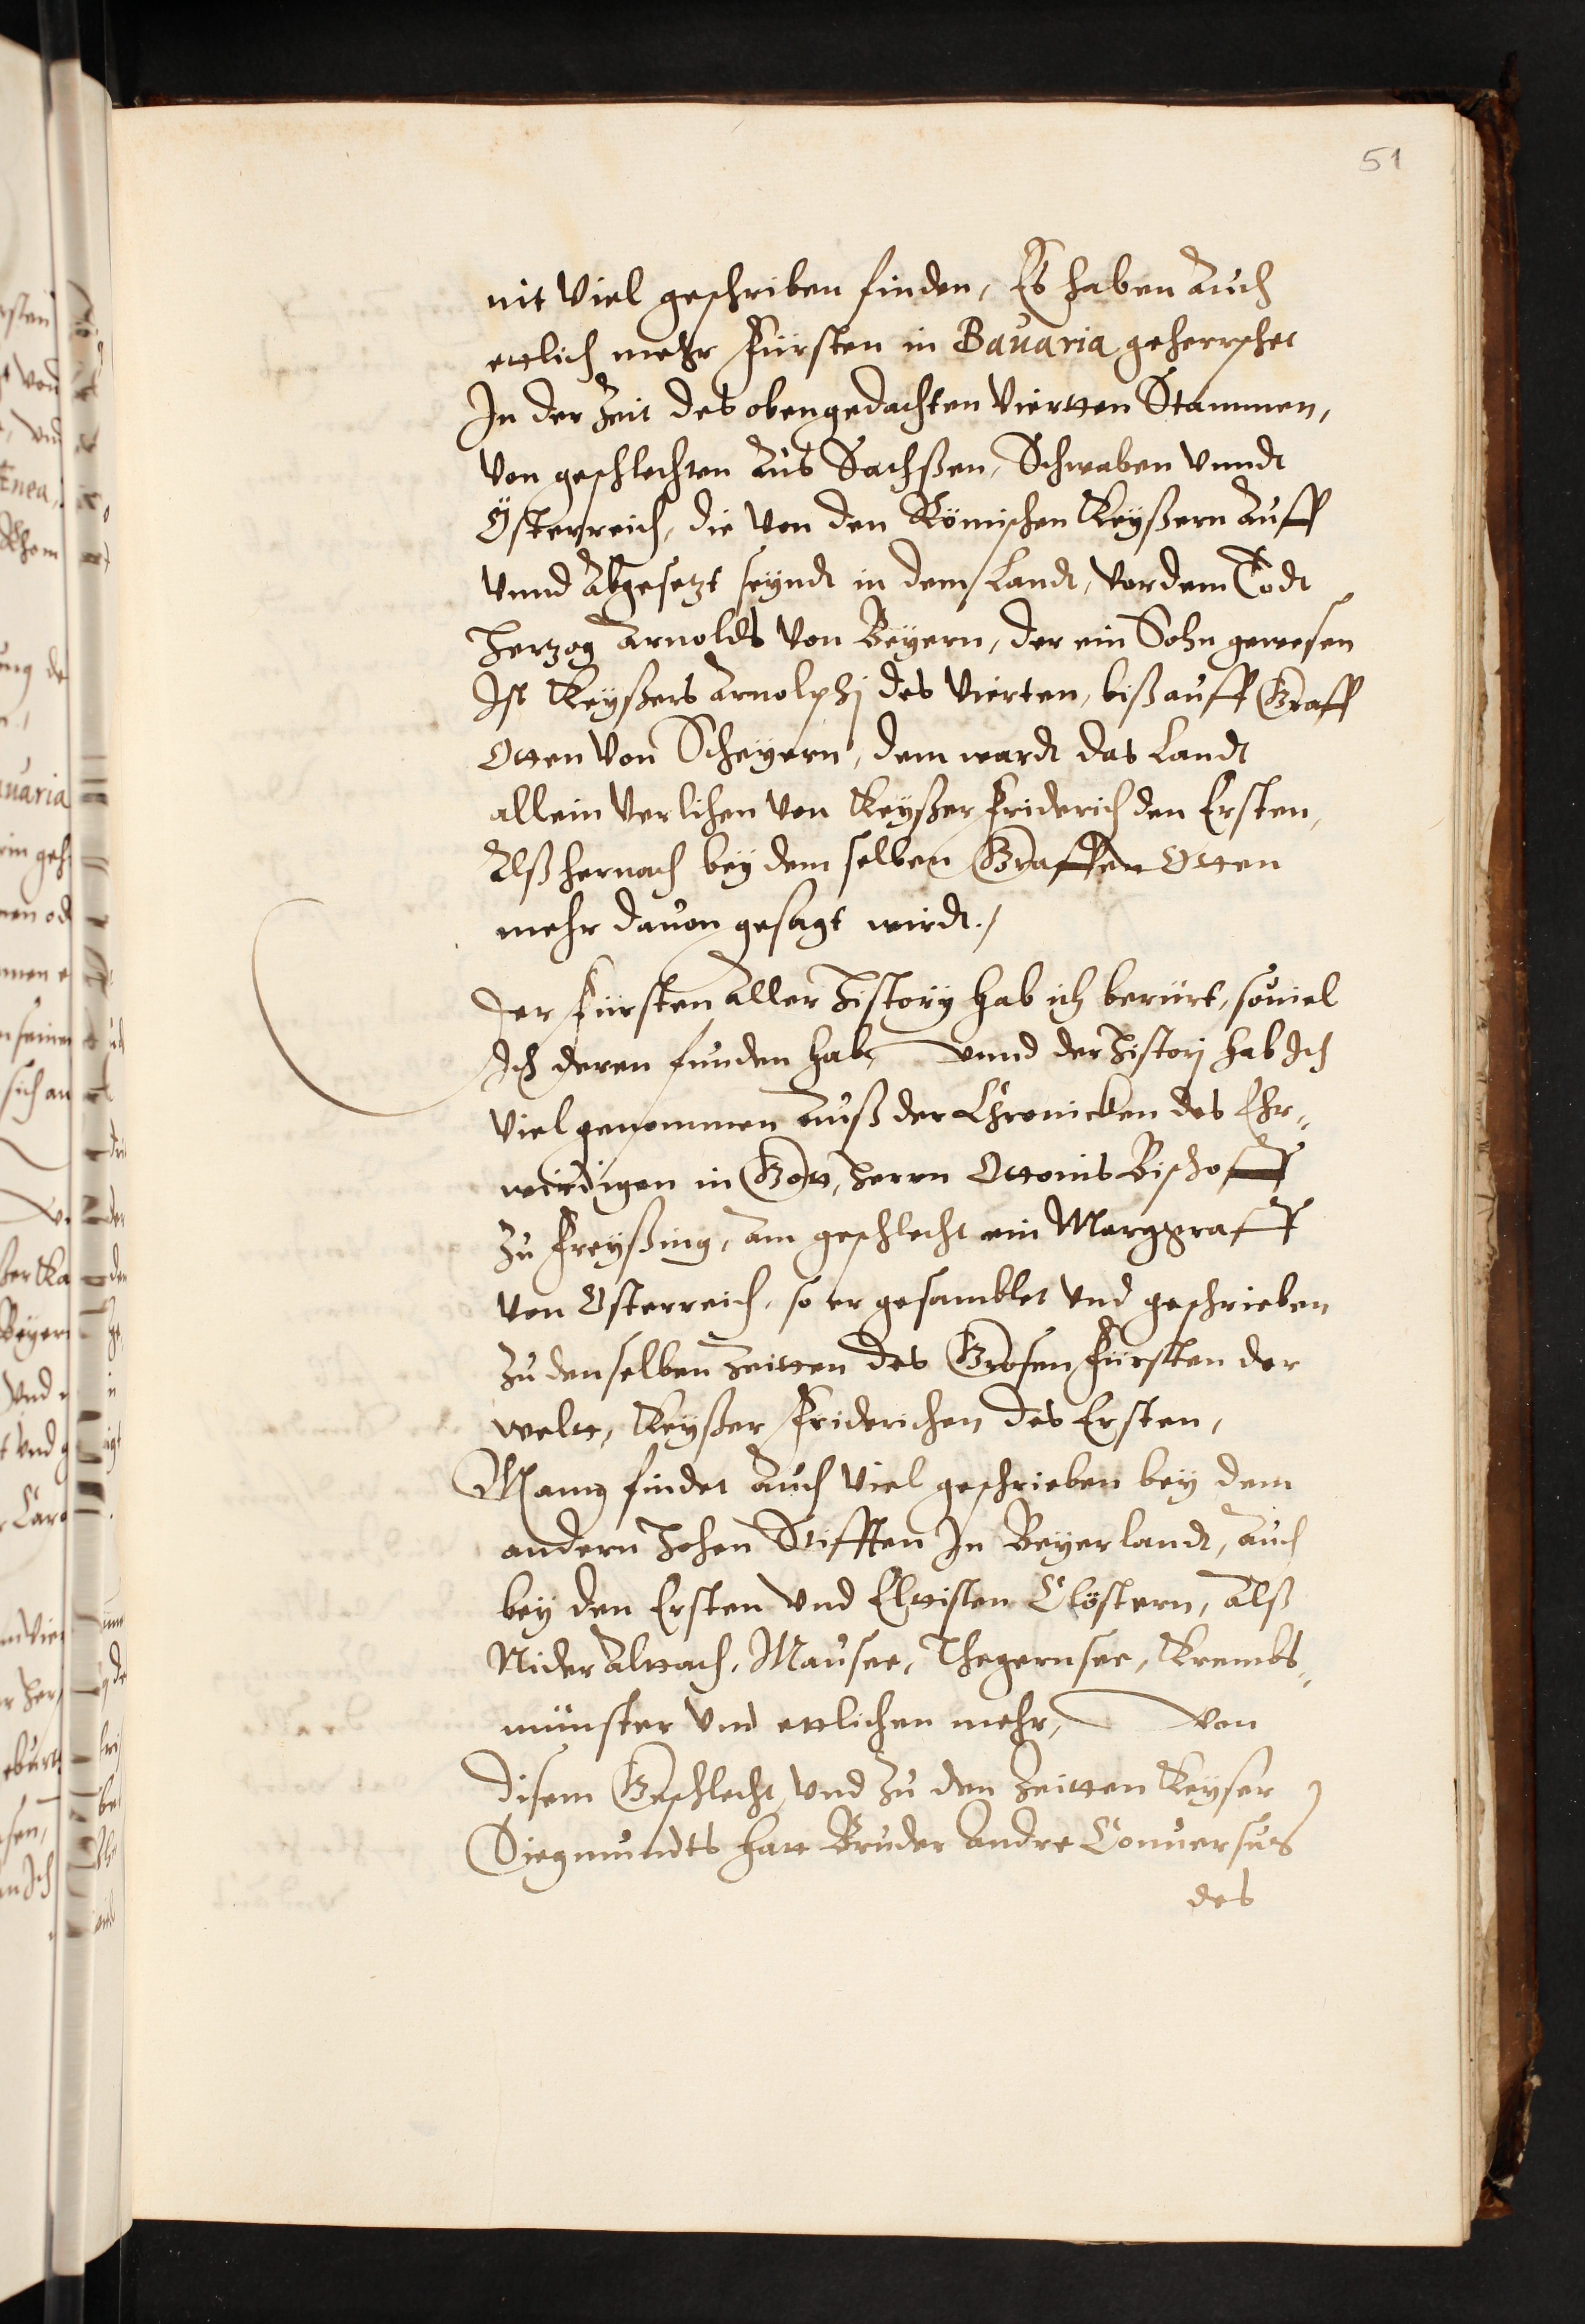 51
nit Viel geschriben finden, Es haben Auch
ettlich mehr Fürsten in Bauaria geherrschet
In der Zeit des obengedachten Viertten Stammen,
Von geschlechten Aus Sachßen, Schwaben Vnndt
Österreich, die Von den Römischen Keyßern Auff
Vnnd Abgesetzt seyndt in dem Landt, Vor dem Todt
Hertzog Arnolds Von Beyern, der ein Sohn gewesen
Ist Keyßers Arnolphj des Vierten, biß auff Graff
Otten Von Scheyern, dem wardt das Landt
allein Verlihen Von Keyßer Friderich den Ersten,
Alß hernach bey dem selben Graffen Otten
mehr dauon gesagt wirdt./
Der Fürsten Aller History hab ich berürt, souiel
Ich deren funden hab, Vnnd der Historj hab Ich
Viel genommen Auß der Chronicken des Ehr„
wirdigen in Gott, Herrn Ottonis Bischoff
Zu Freyßing, Am geschlecht ein Marggraff
Von Osterreich, so er gesamblet Vnd geschrieben
Zu den selben Zeitten des Grosen Fürsten der
welt, Keyßer Friderichen des Ersten,
Mann findet Auch Viel geschrieben bey dem
andern Hohen Stifften In Beyerlandt, auch
bey den Ersten Vnd Elttisten Clöstern, Alß
Nider Alttach, Mausee, Thegernsee, Krembs„
münster Vnd ettlichen mehr, Von
disem Geschlecht, Vnd Zu den Zeitten Keyser
Siegmundts hatt Bruder Andre Conuersus
des